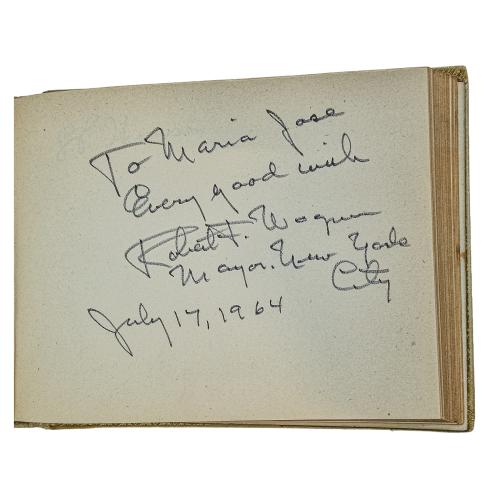 To Maria Jose
Every good wish
Robert F. Wagner
Mayor. New York
City
July 17, 1964